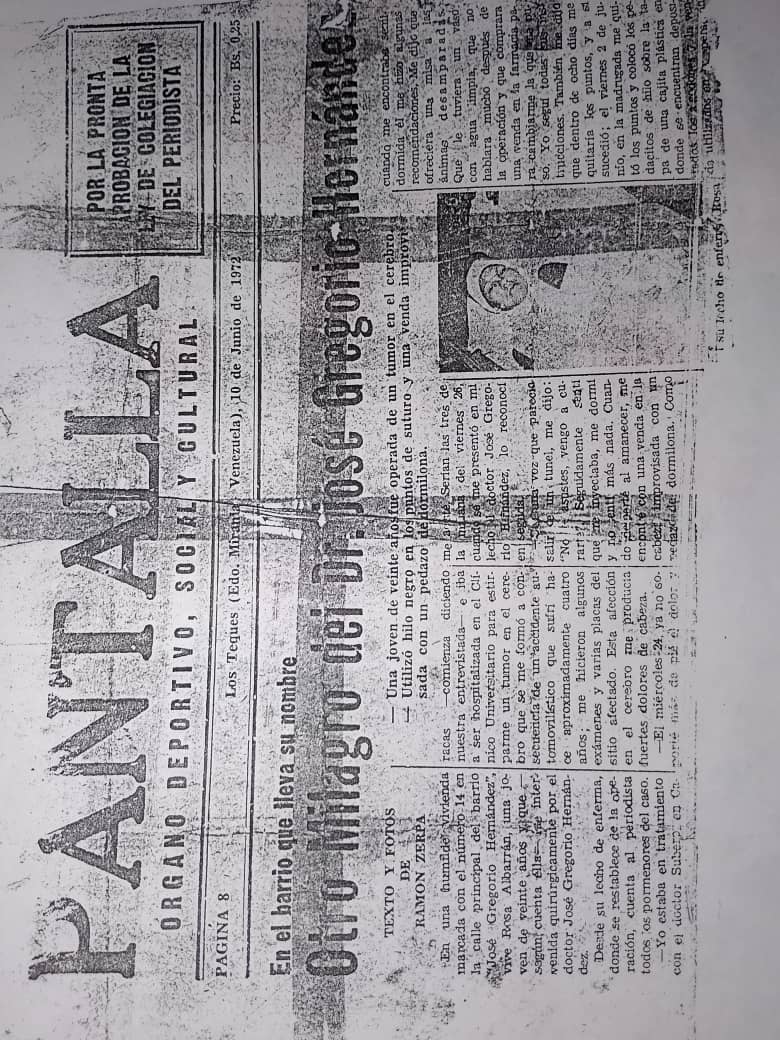 PANTALLA
ORGANO DEPORTIVO, SOCIAL Y CULTURAL
POR LA PRONTA
PROBACION DE LA
LEY DE COLEGIACION
DEL PERIODISTA
PAGINA 8
Los Teques (Edo. Miranda, Venezuela), 10 de Junio de 1972
Precio: Bs. 0,25
En el barrio que lleva su nombre
Otro Milagro del Dr. José Gregorio Hernánde
TEXTO Y FOTOS
DE
RAMON ZERPA
— Una joven de veinte años fue operada de un tumor en el cerebro
— Utilizó hilo negro en los puntos de suturo y una venda improvi
sada con un pedazo de dormilona.
En una humilde vivienda
marcada con el número 14 en
la calle principal del barrio
"José Gregorio Hernández",
vive Rosa Albarrán, una jo-
ven de veinte años y que —
según cuenta ella— fue inter
venida quirúrgicamente por el
doctor José Gregorio Hernán-
dez.
Desde su lecho de enferma,
donde se restablece de la ope-
ración, cuenta al periodista
todos los pormenores del caso.
—Yo estaba en tratamiento
con el doctor Subero en Ca-
racas —comienza diciendo
nuestra entrevistada— e iba
a ser hospitalizada en el Clí-
nico Universitario para estir-
parme un tumor en el cere-
bro que se me formó a con-
secuencia de un accidente au-
tomovilístico que sufrí ha-
ce aproximadamente cuatro
años; me hicieron algunos
exámenes y varias placas del
sitio afectado. Esta afección
en el cerebro me producía
fuertes dolores de cabeza.
—El miércoles 24 ya no so-
porté más de pié el dolor y
me Serían las tres de
la mañana del viernes 26,
cuando se me presentó en mi
lecho el doctor José Grego-
rio Hernández, lo reconocí
en seguida.
una voz que parecía
salir de un tunel, me dijo:
"No te asustes, vengo a cu-
rarte". Seguidamente sentí
que me inyectaba, me dormí
y no sentí más nada. Cuan-
do desperté al amanecer, me
encontré con una venda en la
cabeza improvisada con un
pedazo de dormilona. Como
cuando me encontraba semi-
dormida él me hizo algunas
recomendaciones. Me dijo que
ofreciera una misa a las
ánimas desamparadas.
Que le tuviera un vaso
con agua limpia, que no
hablara mucho después de
la operación y que comprara
una venda en la farmacia pa-
ra cambiarme la que
so. Yo seguí todas sus ins-
trucciones. También me dijo
que dentro de ocho días me
quitaría los puntos, y a sí
sucedió; el viernes 2 de ju-
nio, en la madrugada me qui-
tó los puntos y colocó los pe-
dacitos de hilo sobre la ta-
pa de una cajita plástica en
donde se encuentran deposi-
su lecho de enferma, Rosa